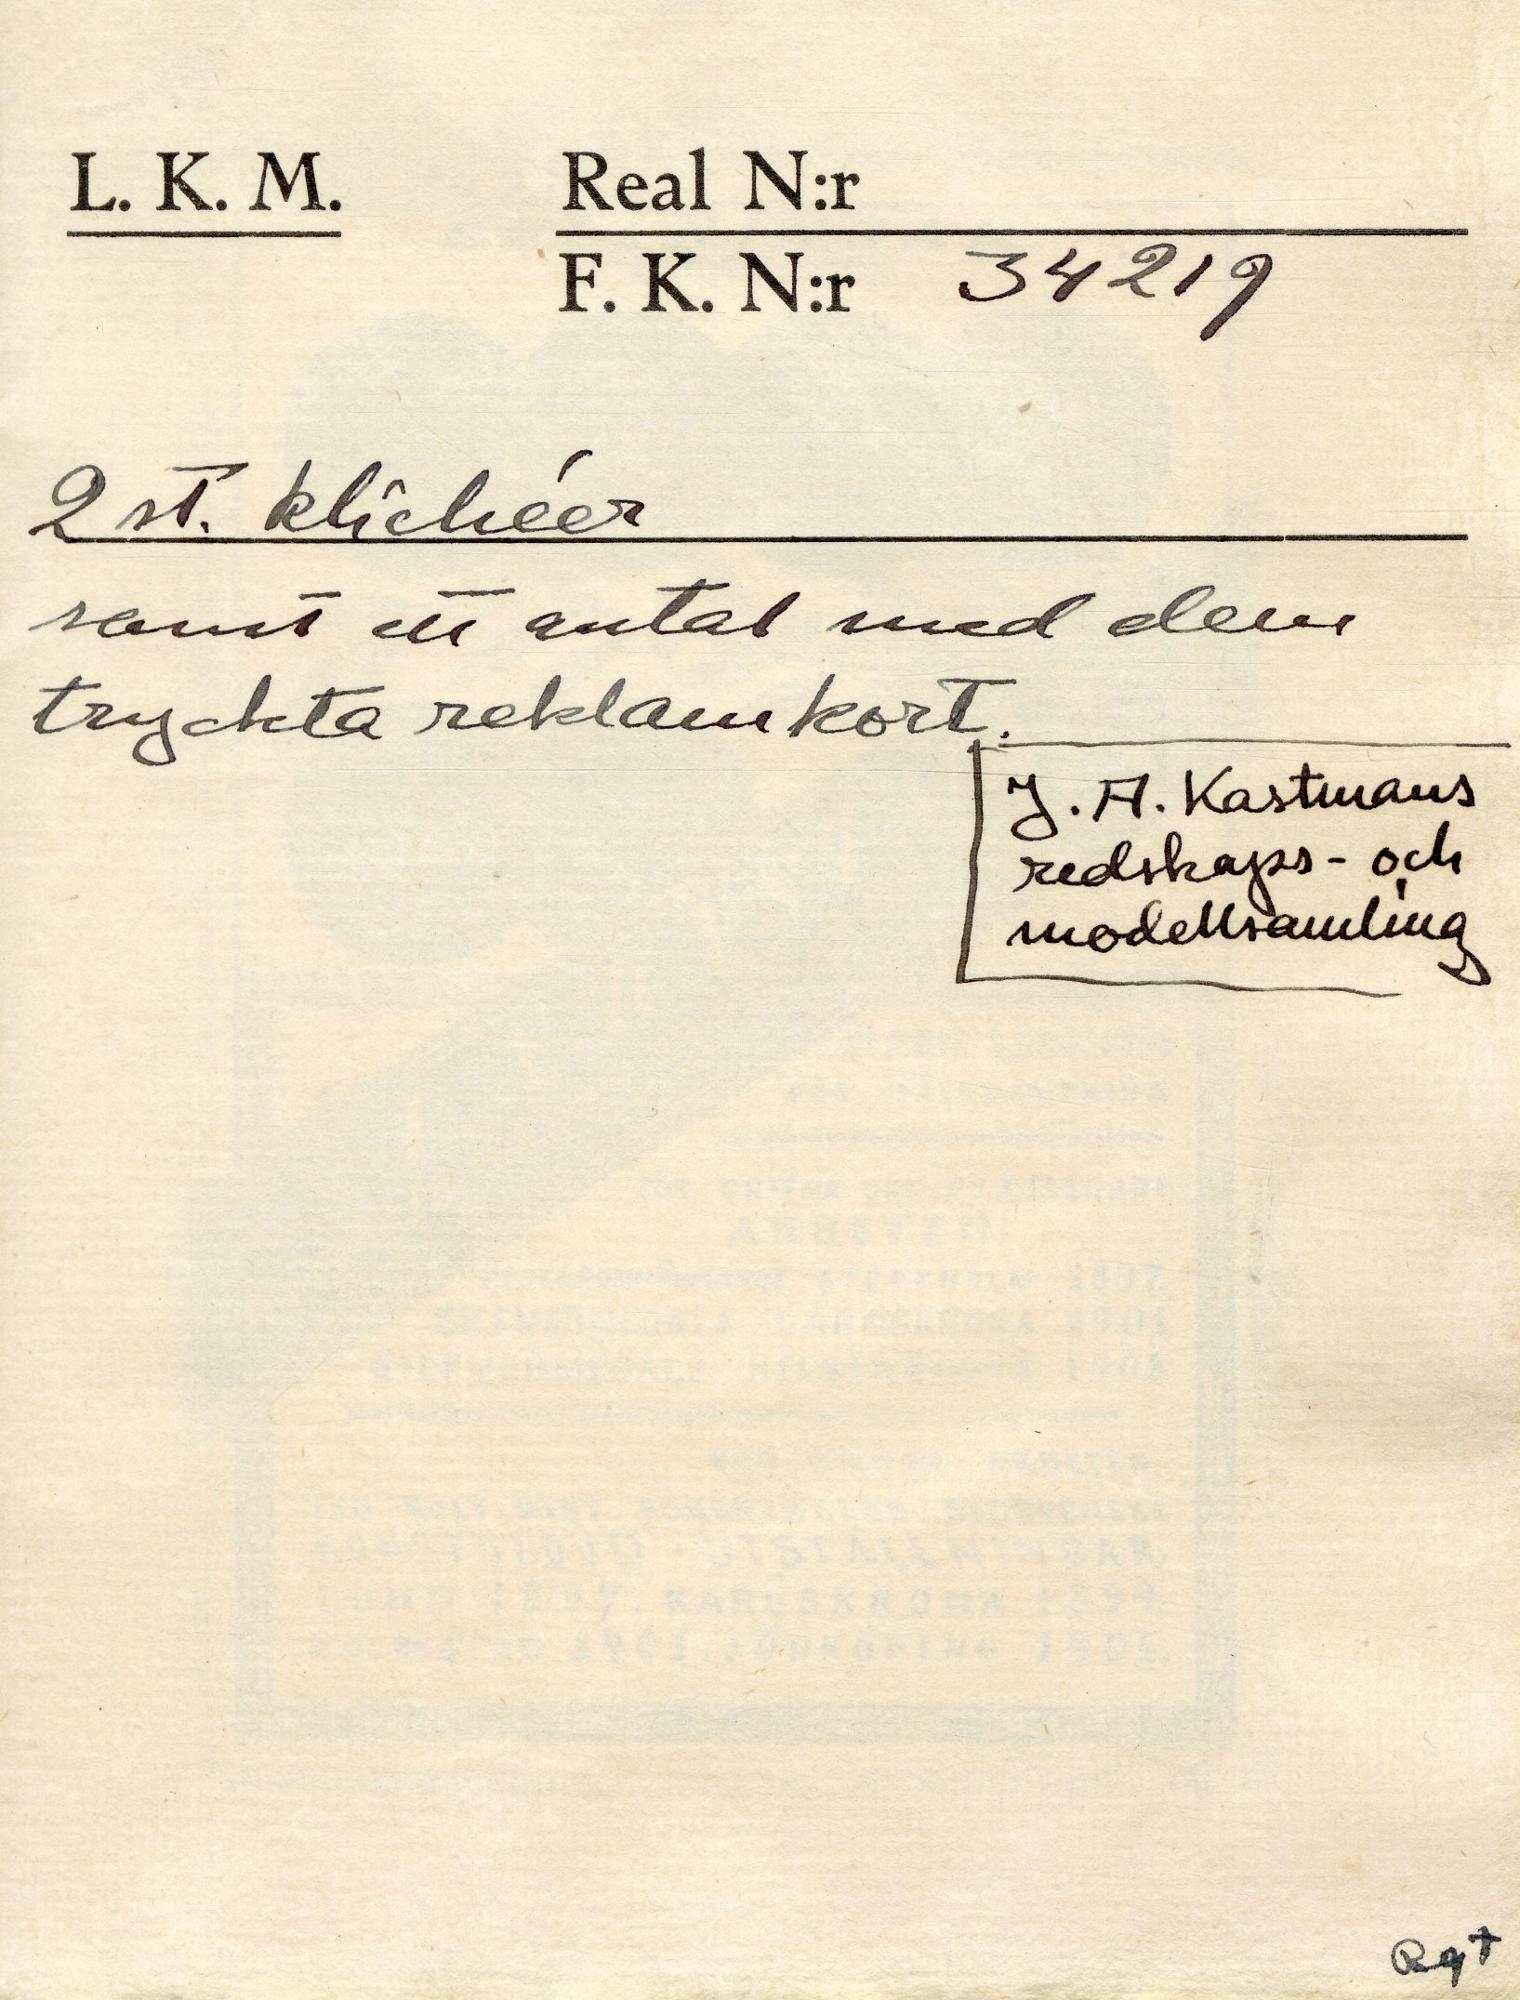 L. K. M.
Real N:r
F. K. N:r 34219
2 st. klichéer
samt ett antal med dem
tryckta reklamkort.
J. A. Kastmans
redskaps- och
modellsamling